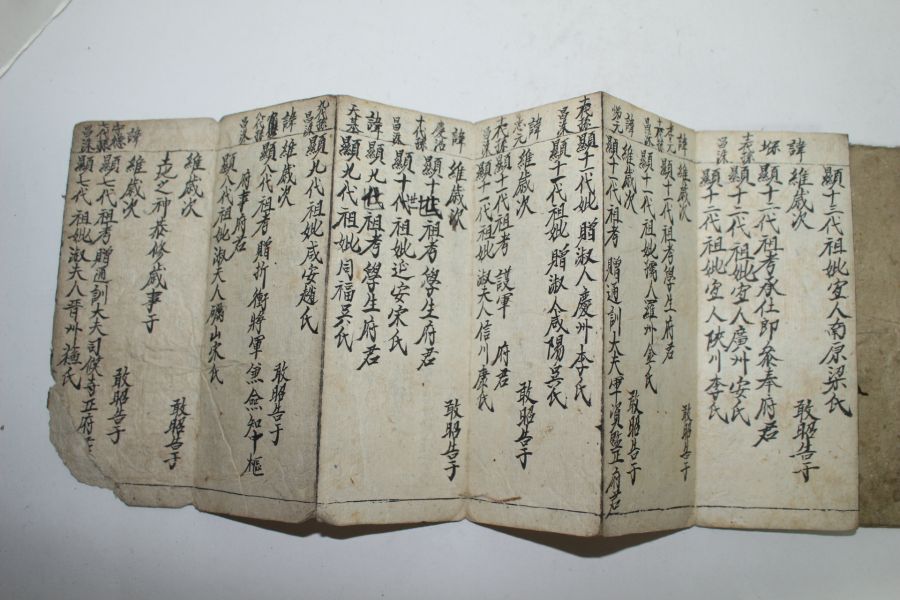 顯十三代祖妣宜人南原梁氏
諱 維歲次 敢昭告于
顯十二代祖考承仕郎參奉府君
昌洙 顯十二代祖妣宜人廣州安氏
顯十二代祖妣宜人陜川李氏
諱 維歲次 敢昭告于
顯十一代祖考學生府君
昌洙 顯十一代祖妣孺人羅州金氏
諱 維歲次 敢昭告于
顯十一代祖考 贈通訓大夫軍資監正府君
顯十一代祖妣 贈淑人慶州李氏
昌洙 顯十一代祖妣 贈淑人咸陽吳氏
諱 維歲次 敢昭告于
顯十一代祖考 護軍 府君
昌洙 顯十一代祖妣淑夫人信川康氏
諱 維歲次 敢昭告于
顯十世祖考學生府君
昌洙 顯十代祖妣延安宋氏
諱 顯九世祖考學生府君
天基 顯九代祖妣同福吳氏
九代孫 昌洙 顯九代祖妣咸安趙氏
諱 維歲次 敢昭告于
八代孫 顯八代祖考 贈折衝將軍兼僉知中樞
府事府君
昌洙 顯八代祖妣淑夫人礪山宋氏
維歲次 敢昭告于
土地之神恭修歲事于
諱 維歲次 敢昭告于
七代孫 顯七代祖考贈通訓大夫司僕寺正府
昌洙 顯七代祖妣淑夫人晉州蘇氏